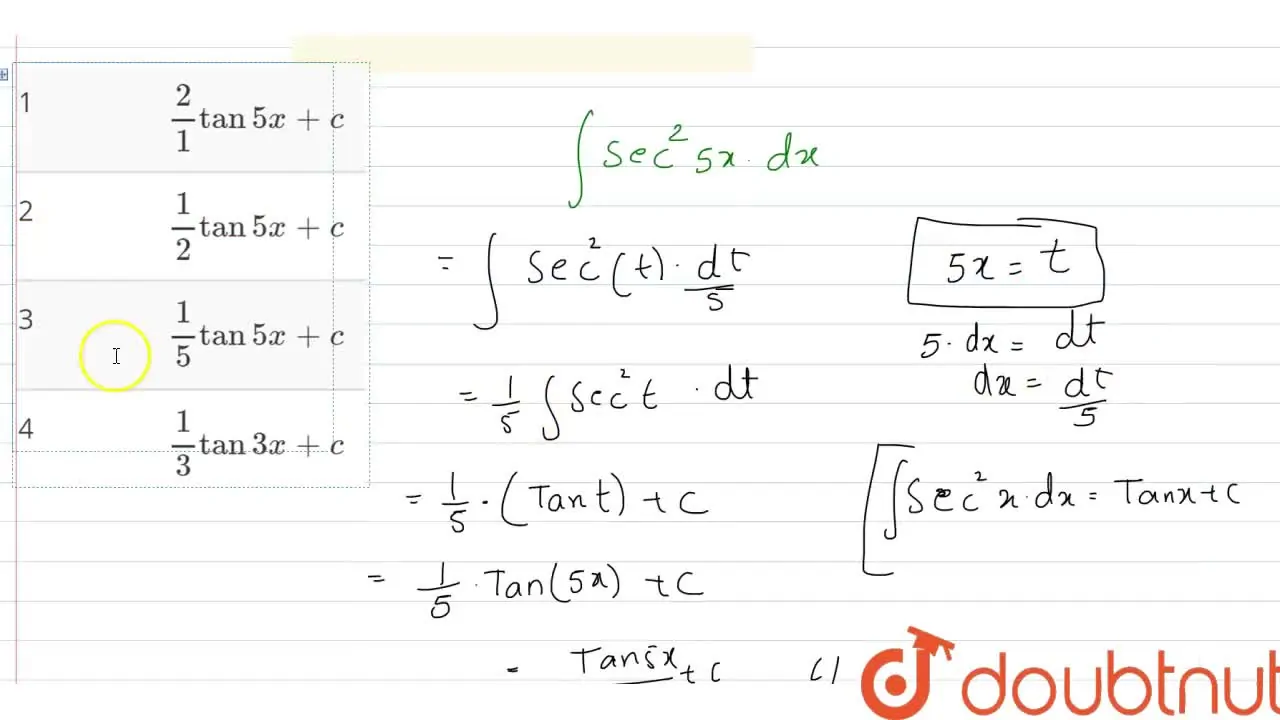 1 2/1 tan 5x + c
2 1/2 tan 5x + c
3 1/5 tan 5x + c
4 1/3 tan 3x + c
∫ Sec² 5x · dx
= ∫ Sec² (t) · dt/5
5x = t
5 · dx = dt
dx = dt/5
= 1/5 ∫ Sec² t · dt
∫ Sec² x · dx = Tanx + C
= 1/5 · (Tan t) + C
= 1/5 · Tan(5x) + C
= Tan5x + C
doubtnut